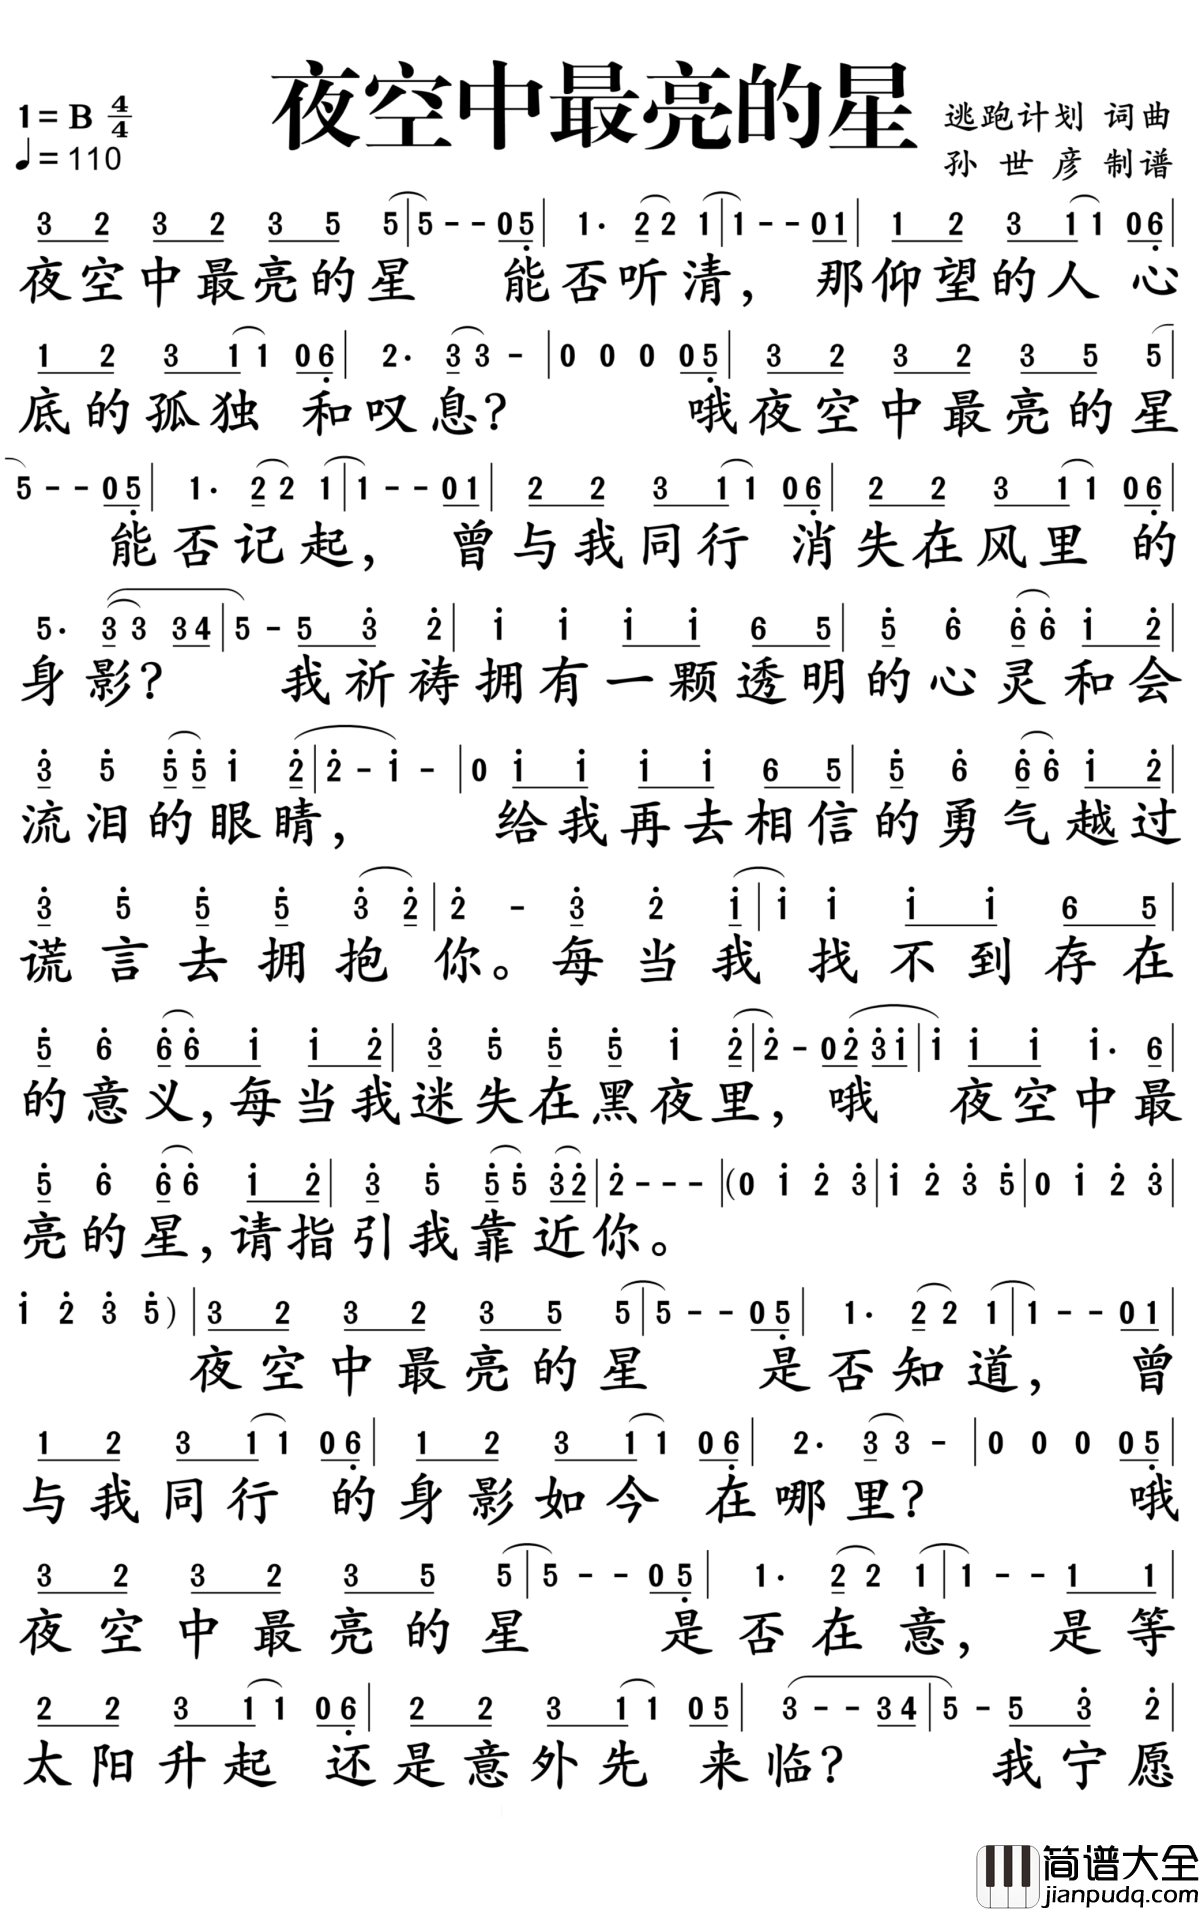 夜空中最亮的星
1=B 4/4
♩=110
逃跑计划 词曲
孙世彦 制谱
3 2 3 2 3 5 5|5 - - 05|1· 22 1|1 - - 01|1 2 3 11 06|
夜空中最亮的星 能否听清，那仰望的人 心
1 2 3 11 06|2· 33 -|0 0 0 05|3 2 3 2 3 5 5
底的孤独 和叹息？ 哦夜空中最亮的星
5 - - 05|1· 22 1|1 - - 01|2 2 3 11 06|2 2 3 11 06|
能否记起，曾与我同行 消失在风里 的
5· 33 34|5 - 5 3 2|1 1 1 1 6 5|5 6 66 1 2|
身影？ 我祈祷拥有一颗透明的心灵和会
3 5 55 1 2|2 - 1 -|0 1 1 1 1 6 5|5 6 66 1 2|
流泪的眼睛， 给我再去相信的勇气越过
3 5 5 5 3 2|2 - 3 2 1|1 1 1 1 6 5|
谎言去拥抱 你。每当我 找不到存在
5 6 66 1 1 2|3 5 5 5 1 2|2 - 0231|1 1 1 1· 6|
的意义，每当我迷失在黑夜里，哦 夜空中最
5 6 66 1 2|3 5 55 32|2 - - -|(0 1 2 3|1 2 3 5|0 1 2 3|
亮的星，请指引我靠近你。
1 2 3 5)|3 2 3 2 3 5 5|5 - - 05|1· 22 1|1 - - 01|
夜空中最亮的星 是否知道，曾
1 2 3 11 06|1 2 3 11 06|2· 33 -|0 0 0 05|
与我同行 的身影如今 在哪里？ 哦
3 2 3 2 3 5 5|5 - - 05|1· 22 1|1 - - 1 1|
夜空中最亮的星 是否在意，是等
2 2 3 11 06|2 2 3 11 05|3 - - 34|5 - 5 3 2|
太阳升起 还是意外先 来临？ 我宁愿
简谱大全
jianpudq.com